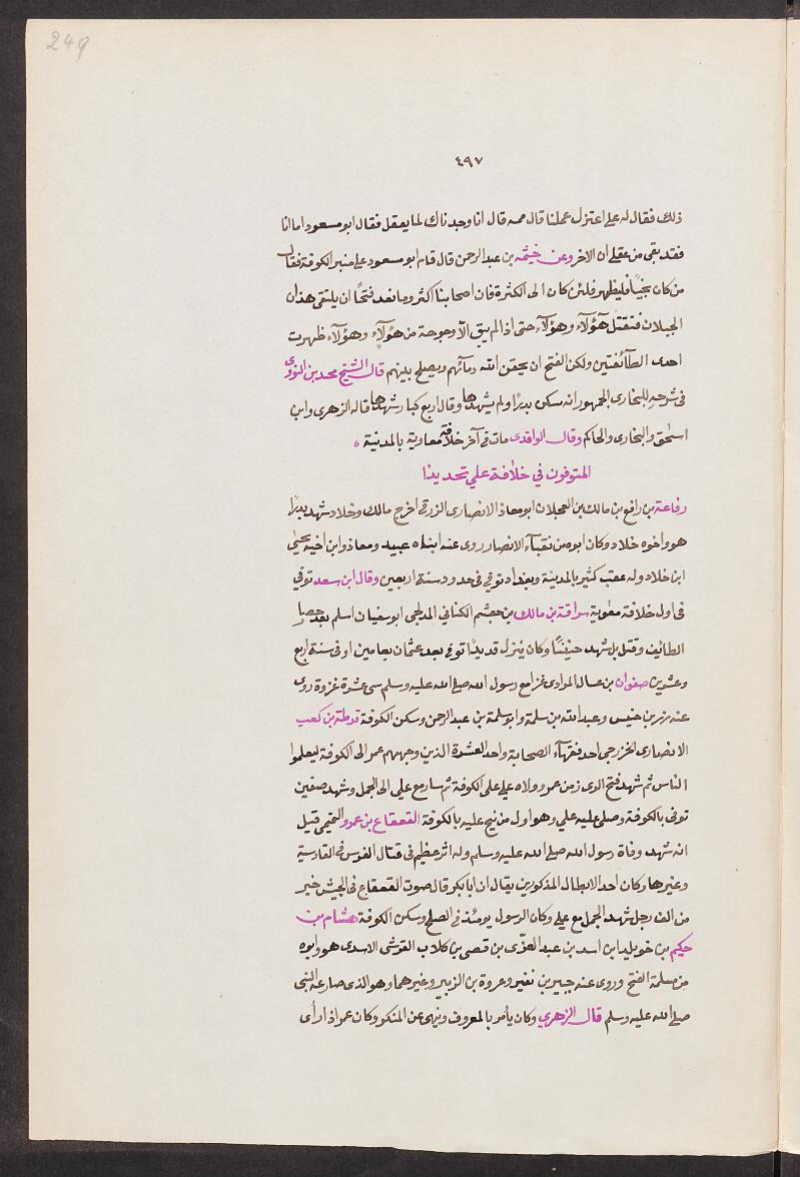 249
٤٩٧
ذلك فقال له علي اعتزل عملنا قال ممه قال انا وجدناك لما يعقل فقال ابو مسعود اما انا
فقد بقى من عقلي ان الاخر وعن خيثمه بن عبد الرحمن قال قام ابو مسعود على منبر الكوفة فقال
من كان تخبيا فليظهر فلئن كان الى الكثرة فان اصحابنا اكثر وما نعد فتحا ان يلتقى هذان
الجبلان فتقتل هؤلآء وهؤلآء حتى اذا لم يبق الا وجوجة من هؤلآء وهؤلآء ظهرت
احدى الطآئفتين ولكن الفتح ان يحقن الله دمآئهم ويصلح بينهم قال الشيخ محمد بن النووى
فى شرحه للبخارى الجمهور انه سكن بدرا ولم يشهدها وقال اربع كبار شهدها قاله الزهرى وابن
اسحق والبخارى والحاكم وقال الواقدى مات فى آخر خلافة معاوية بالمدنية
المتوفون في خلافة علي تحديدا
رفاعة بن رافع بن مالك بن العجلان ابو معاذ الانصارى الزرقى اخرج مالك وخلاد شهد بدرا
هو واخوه خلاد وكان ابوه من نقبآء الانصار روى عنه ابناه عبيد ومعاذ وابن اخيه يحيى
ابن خلاد وله عقب كثير بالمدينة وبغداد توفي فى حدود سنة اربعين وقال ابن سعد توفي
فى اول خلافة معوية سراقة بن مالك بن جعشم الكناني المدلجى ابو سفيان اسلم بعد حصار
الطائيف وقتل بل شهد حنينا وكان ينزل قديدا توفى بعد عثمان بعامين او فى سنة اربع
وعشرين صفوان بن عسال المرادى غزا مع رسول الله صلى الله عليه وسلم سى عشرة غزوة روى
عنه زر بن حبيس وعبد الله بن سلمة وابو سلمة بن عبد الرحمن وسكن الكوفة قرظة بن كعب
الانصارى الخزرجى احد فقهآء الصحابة واحد العشرة الذين وجههم عمر الى الكوفة ليعلموا
الناس ثم شهد فتح الرى زمن عمر وولاه علي على الكوفة ثم سار مع علي الى الجمل وشهد صفين
توفى بالكوفة وصلى عليه علي وهو اول من نيح عليه بالكوفة القعقاع بن عمرو التميمى قيل
انه شهد وفاة رسول الله صلى الله عليه وسلم وله اثر عظيم فى قتال الفرس فى القادسية
وغيرها وكان احد الابطال المذكورين يقال ان ابا بكر قال صوت القعقاع فى الجيش خير
من الف رجل شهد الجمل مع علي وكان الرسول يومئذ فى الصلح وسكن الكوفة هشام بن
حكيم بن خويلد ابن اسد بن عبد العزى بن قصى بن كلاب القرشى الاسدى هو وابوه
من مسلمة الفتح وروى عنه جبير بن نفير وعروة بن الزبير وغيرهما وهو الذى صارعه النبى
صلى الله عليه وسلم قال الزهري وكان يأمر بالمعروف وينهى عن المنكر وكان عمر اذا رأى